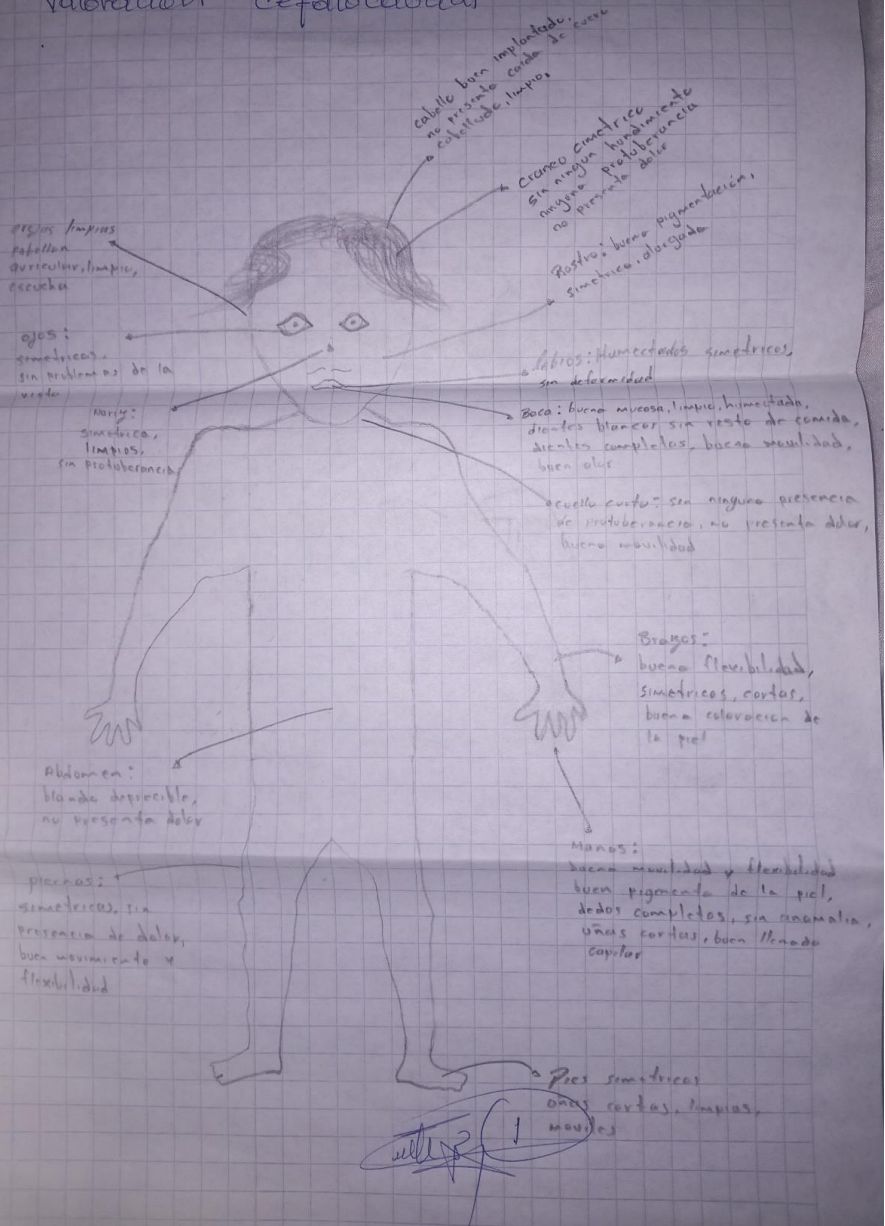 Valoración Cefalocaudal
cabello buen implantado,
no presenta caida de cuero
cabelludo, limpio,
craneo cimetrico
sin ningun hundimiento
ninguna protuberancia
no presenta dolor
Rostro: buena pigmentación,
simetrico, alargada
orejas limpias
pabellon
auricular, limpio,
escucha
ojos:
simetricos,
sin problemas de la
vista
Nariz:
simetrica,
limpios,
sin protuberancia
labios: Humectados simetricos,
sin deformidad
Boca: buena mucosa, limpia, humectada,
dientes blancos sin resto de comida,
dientes completos, buena movilidad,
buen olor
cuello corto: sin ninguna presencia
de protuberancia, no presenta dolor,
buena movilidad
Brazos:
buena flexibilidad,
simetricos, cortas,
buena coloracion de
la piel
Abdomen:
blando deprecible,
no presenta dolor
Manos:
buena movilidad y flexibilidad
buen pigmento de la piel,
dedos completos, sin anomalia,
uñas cortas, buen llenado
capilar
piernas:
simetricas, sin
presencia de dolor,
buen movimiento y
flexibilidad
Pies simetricos
uñas cortas, limpias,
moviles
1